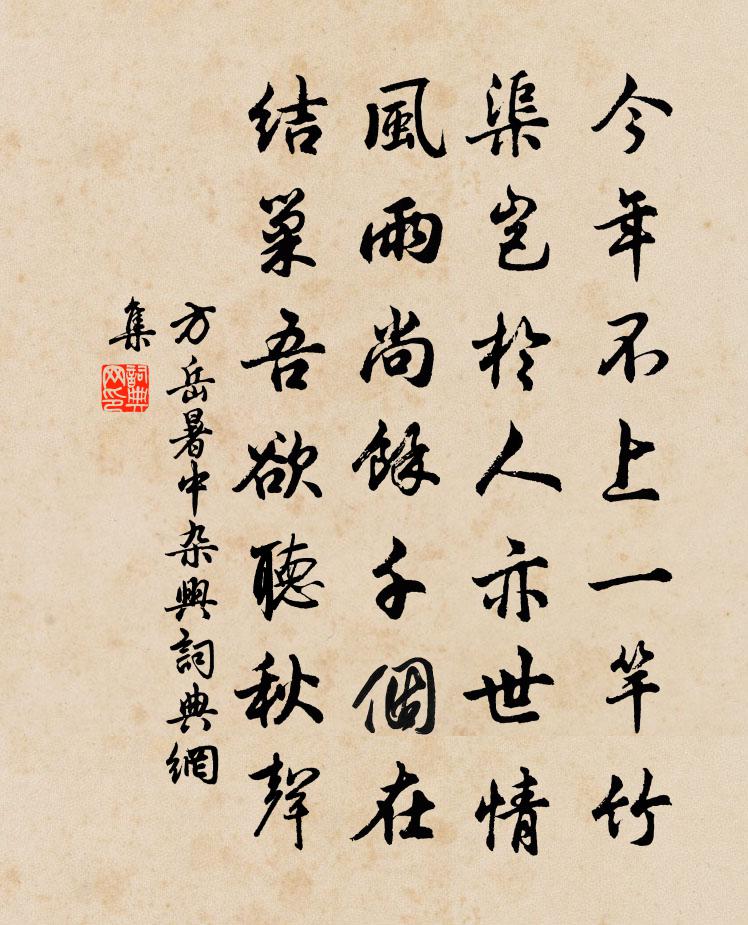 今年不上一竿竹
渠岂於人亦世情
風雨尚餘千個在
結巢吾欲聽秋聲
方岳暑中杂興詞典網
集
詞典
网印